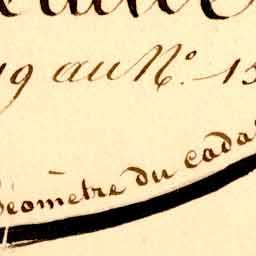 19 au N.° 15
Géomètre du cada